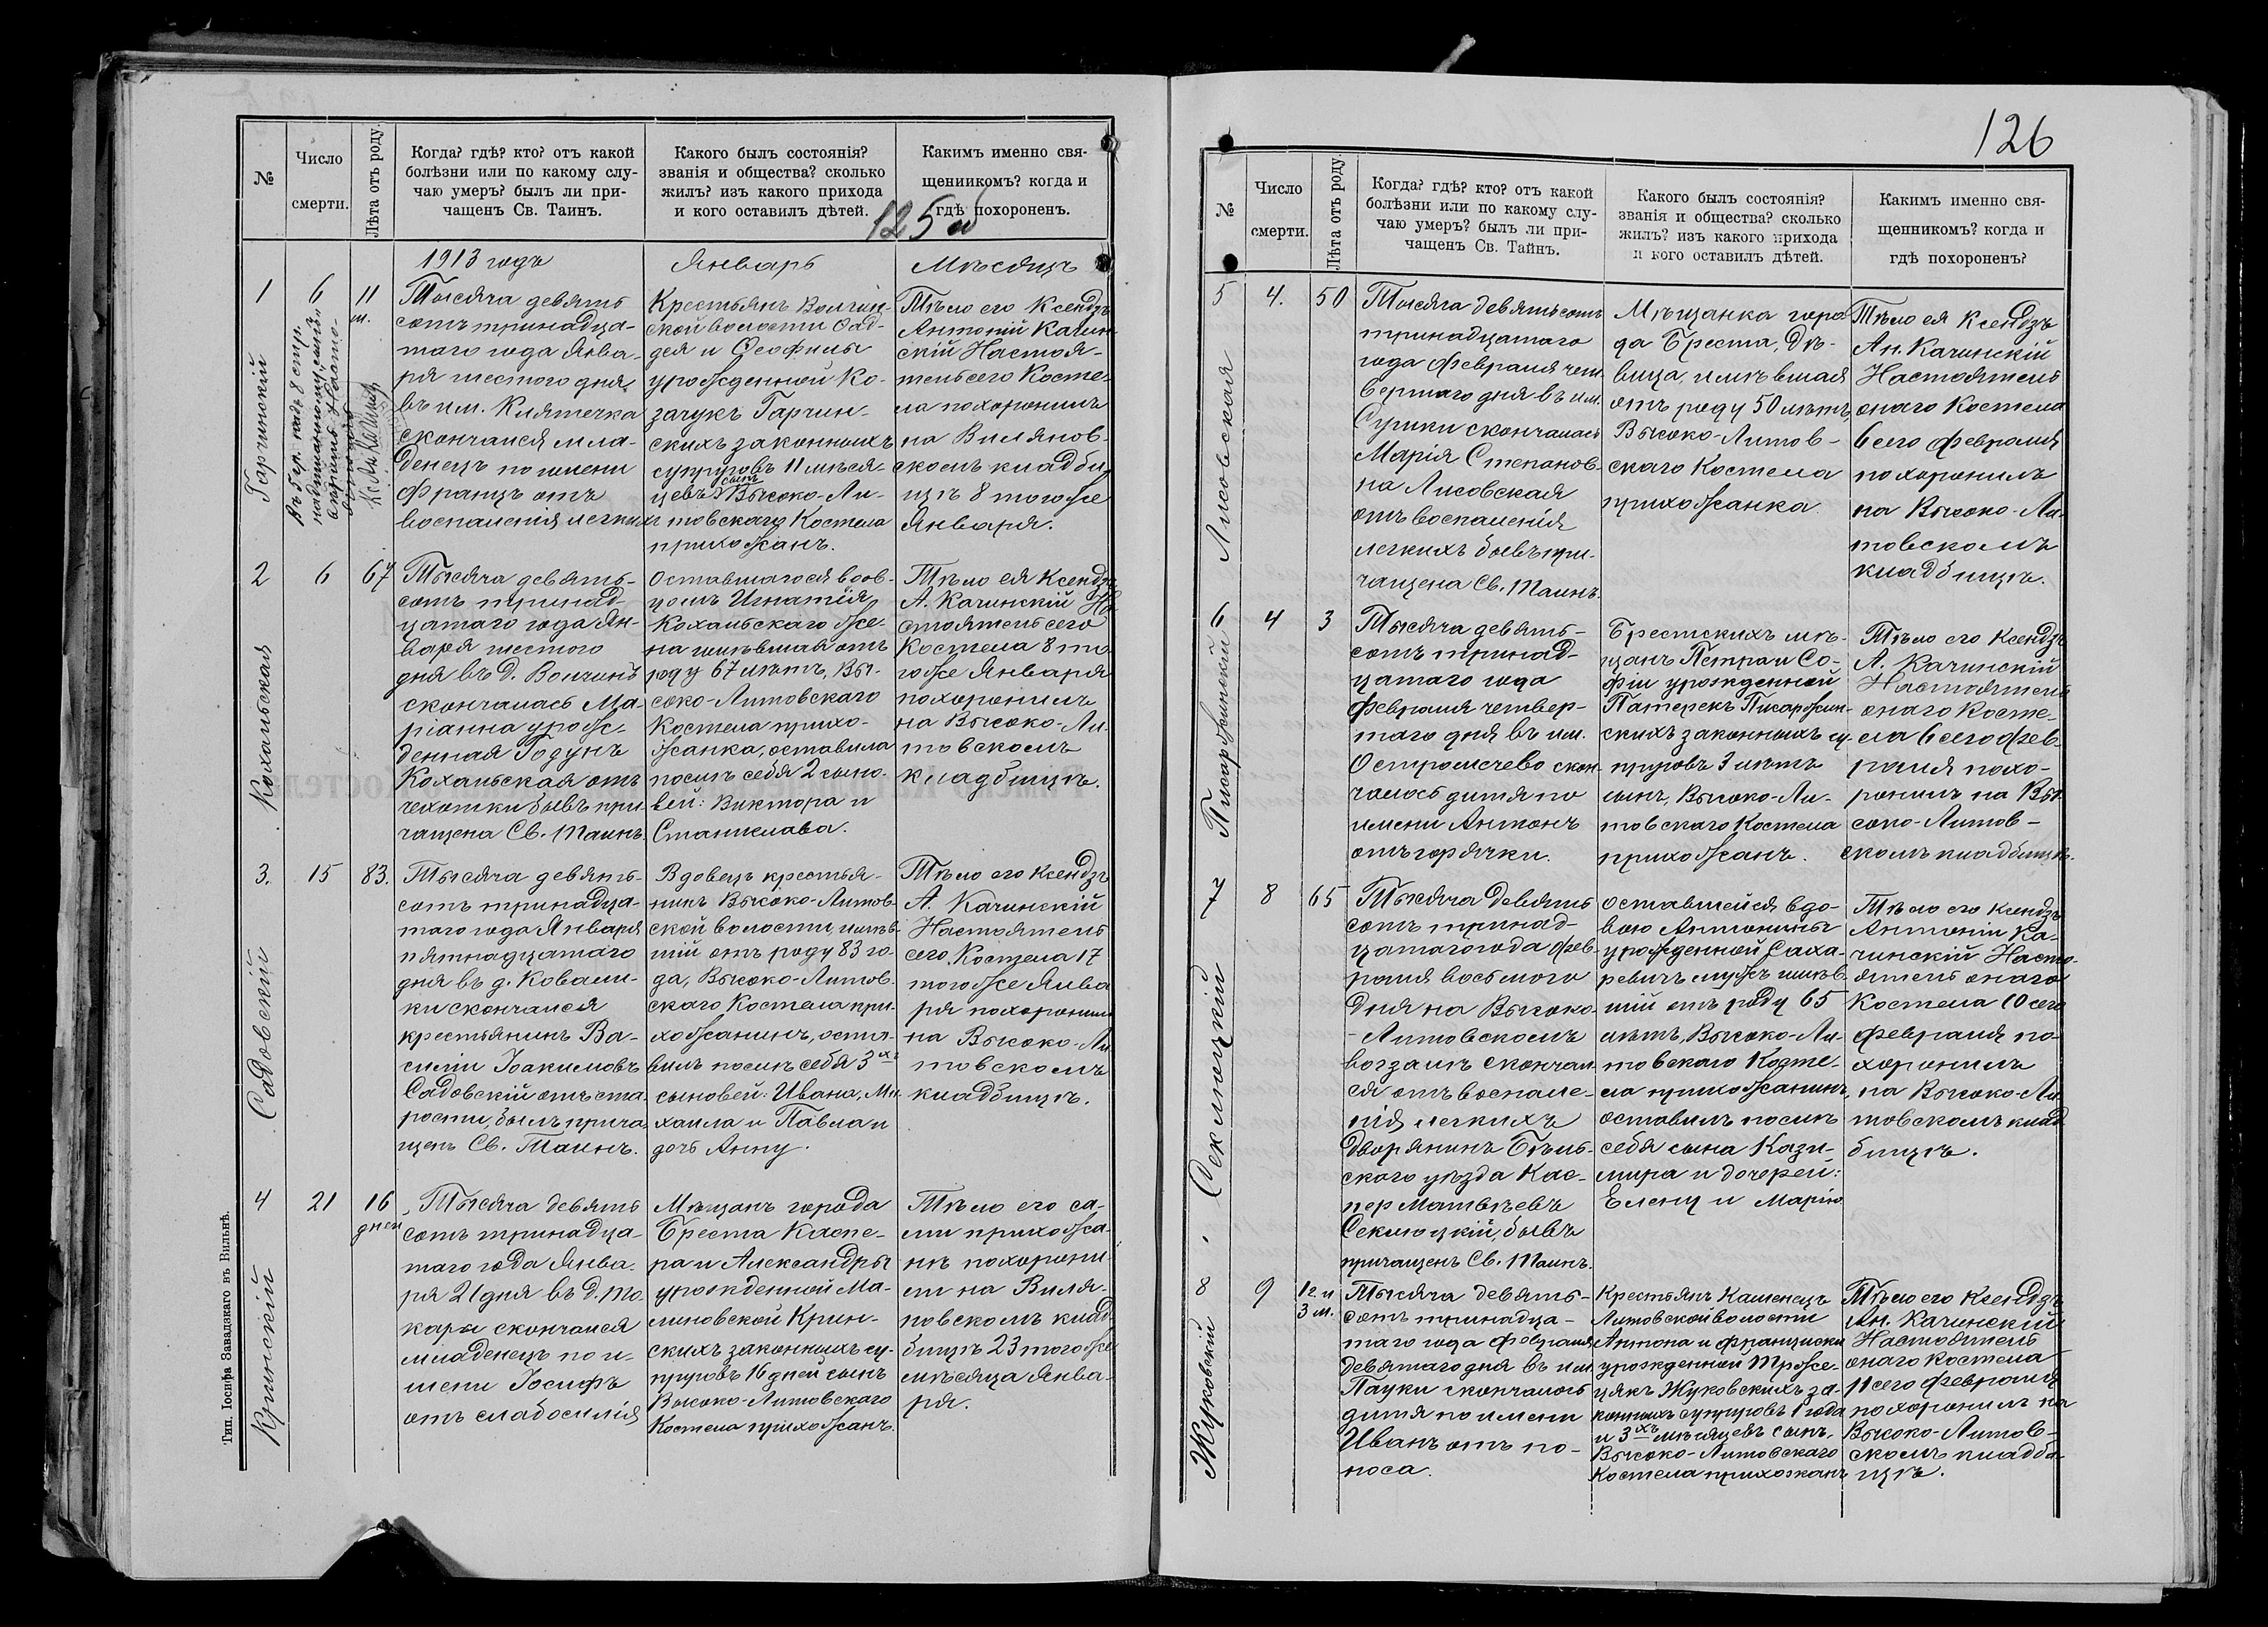 125 об
№
Число
смерти.
Лѣта отъ роду.
Когда? гдѣ? кто? отъ какой
болѣзни или по какому слу-
чаю умеръ? былъ ли при-
чащенъ Св. Таинъ.
Какого былъ состоянія?
званія и общества? сколько
жилъ? изъ какого прихода
и кого оставилъ дѣтей.
Какимъ именно свя-
щенникомъ? когда и
гдѣ похороненъ.
1913 годъ
Январь
Мѣсяцъ
1
Гарчинскій
6
11
м.
Тысяча девять
сотъ тринадца-
таго года Янва-
ря шестого дня
въ им. Клятечка
скончался мла-
денецъ по имени
Францъ отъ
воспаленія легкихъ
Крестьянъ Волчин-
ской волости Фад-
дея и Феофилы
урожденной Ко-
зачукъ Гарчин-
скихъ законныхъ
супруговъ 11 мѣся-
цевъ сынъ Высоко-Ли-
товскаго Костела
прихожанъ.
Тѣло его Ксендзъ
Антоній Качин-
скій Настоя-
тель сего Косте-
ла похоронилъ
на Вилянов-
скомъ кладби-
щѣ 8 того же
Января.
2
Кохальская
6
67
Тысяча девять-
сотъ тринад-
цатаго года Ян-
варя шестого
дня въ д. Волчинъ
скончалась Ма-
ріанна урож-
денная Годунъ
Кохальская отъ
чехотки бывъ при-
чащена Св. Таинъ.
Оставшагося вдов-
цомъ Игнатія
Кохальскаго же-
на имѣвшая отъ
роду 67 лѣтъ, Вы-
соко-Литовскаго
Костела прихо-
жанка, оставила
послѣ себя 2 сыно-
вей: Виктора и
Станислава.
Тѣло ея Ксендзъ
А. Качинскій На-
стоятель сего
Костела 8 то-
го же Января
похоронилъ
на Высоко-Ли-
товскомъ
кладбищѣ.
3.
Садовскій
15
83.
Тысяча девять-
сотъ тринадца-
таго года Января
пятнадцатаго
дня въ д. Ковали-
ки скончался
крестьянинъ Ва-
силій Іоакимовъ
Садовскій отъ ста-
рости, былъ прича-
щенъ Св. Таинъ.
Вдовецъ крестья-
нинъ Высоко-Литов-
ской волости имѣв-
шій отъ роду 83 го-
да, Высоко-Литов-
скаго Костела при-
хожанинъ, оста-
вилъ послѣ себя 3хъ
сыновей: Ивана, Ми-
хаила и Павла и
дочь Анну.
Тѣло его Ксендзъ
А. Качинскій
Настоятель
сего Костела 17
того же Янва
ря похоронилъ
на Высоко-Ли
товскомъ
кладбищѣ.
4
Кринскій
21
16
дней
Тысяча девять
сотъ тринадца-
таго года Янва-
ря 21 дня въ д. То-
кары скончался
младенецъ по и-
мени Іосифъ
отъ слабосилія
Мѣщанъ города
Бреста Каспе-
ра и Александры
урожденной Ма-
линовской Крин-
скихъ законныхъ су-
пруговъ 16 дней сынъ
Высоко-Литовскаго
Костела прихожанъ.
Тѣло его са-
ми прихожа-
нѣ похорони-
ли на Виля-
новскомъ клад-
бищѣ 23 того же
мѣсяца Янва-
ря.
Тип. Іосифа Завадзкаго въ Вильнѣ.
126
№
Число
смерти.
Лѣта отъ роду.
Когда? гдѣ? кто? отъ какой
болѣзни или по какому слу-
чаю умеръ? былъ ли при-
чащенъ Св. Тайнъ.
Какого былъ состоянія?
званія и общества? сколько
жилъ? изъ какого прихода
и кого оставилъ дѣтей.
Какимъ именно свя-
щенникомъ? когда и
гдѣ похороненъ?
5
Лисовская
4.
50
Тысяча девятьсотъ
тринадцатаго
года Февраля чет-
вертаго дня въ им.
Сутки скончалась
Марія Степанов-
на Лисовская
отъ воспаленія
легкихъ бывъ при-
чащена Св. Таинъ.
Мѣщанка горо-
да Бреста, Дѣ-
вица, имѣвшая
отъ роду 50 лѣтъ,
Высоко-Литов-
скаго Костела
прихожанка
Тѣло ея Ксендзъ
Ан. Качинскій
Настоятель
онаго Костела
6 сего Февраля
похоронилъ
на Высоко-Ли-
товскомъ
кладбищѣ.
6
Писаржинскій
4
3
Тысяча девять-
сотъ тринад-
цатаго года
Февраля четвер-
таго дня въ им.
Остромечево скон-
чалось дитя по
имени Антонъ
отъ горячки.
Брестскихъ мѣ-
щанъ Петра и Со-
фіи урожденной
Патерекъ Писаржин-
скихъ законныхъ су-
пруговъ 3 лѣтъ
сынъ, Высоко-Ли-
товскаго Костела
прихожанъ.
Тѣло его Ксендзъ
А. Качинскій
Настоятель
онаго Косте-
ла 6 сего Фев-
раля похо-
ронилъ на Вы-
соко-Литов-
скомъ кладбищѣ.
7
Секлюцкій
8
65
Тысяча девять
сотъ тринад-
цатаго года Фев-
раля восьмого
дня на Высоко-
-Литовскомъ
вогзалѣ скончал-
ся отъ воспале-
нія легкихъ
Дворянинъ Бѣль-
скаго уѣзда Кас-
перъ Матвѣевъ
Секлюцкій, бывъ
причащенъ Св. Таинъ.
Оставшейся вдо-
вою Антонины
урожденной Саха-
ревичъ мужъ имѣв-
шій отъ роду 65
лѣтъ, Высоко-Ли-
товскаго Косте-
ла прихожанинъ,
оставилъ послѣ
себя сына Кази-
мира и дочерей:
Елену и Марію
Тѣло его Ксендзъ
Антоній Ка-
чинскій Насто-
ятель онаго
Костела 10 сего
Февраля по-
хоронилъ
на Высоко-Ли
товскомъ клад
бищѣ.
8
Жуковскій
9
1 г. и
3 м.
Тысяча девять-
сотъ тринадца-
таго года Февраля
девятаго дня въ им.
Пауки скончалось
дитя по имени
Иванъ отъ по-
носа.
Крестьянъ Каменецъ
Литовской волости
Антона и Франциски
урожденной Троже-
цякъ Жуковскихъ за-
конныхъ супруговъ 1 года
и 3хъ мѣсяцевъ сынъ,
Высоко-Литовскаго
Костела прихожанъ
Тѣло его Ксендзъ
Ан. Качинскій
Настоятель
онаго Костела
11 сего Февраля
похоронилъ на
Высоко-Литов-
скомъ кладби-
щѣ.